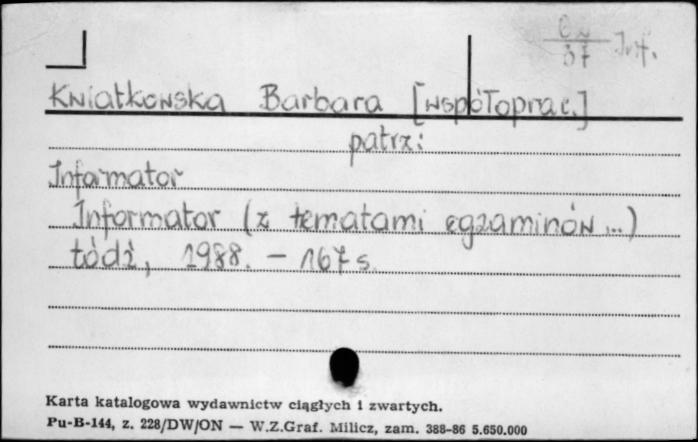 Inf.
37
Kwiatkowska Barbara [współoprac.]
patrz:
Informator
Informator (z tematami egzaminów...)
Łódź, 1988. - 167 s.
Karta katalogowa wydawnictw ciągłych i zwartych.
Pu-B-144, z. 228/DW/ON — W.Z.Graf. Milicz, zam. 388-86 5.650.000